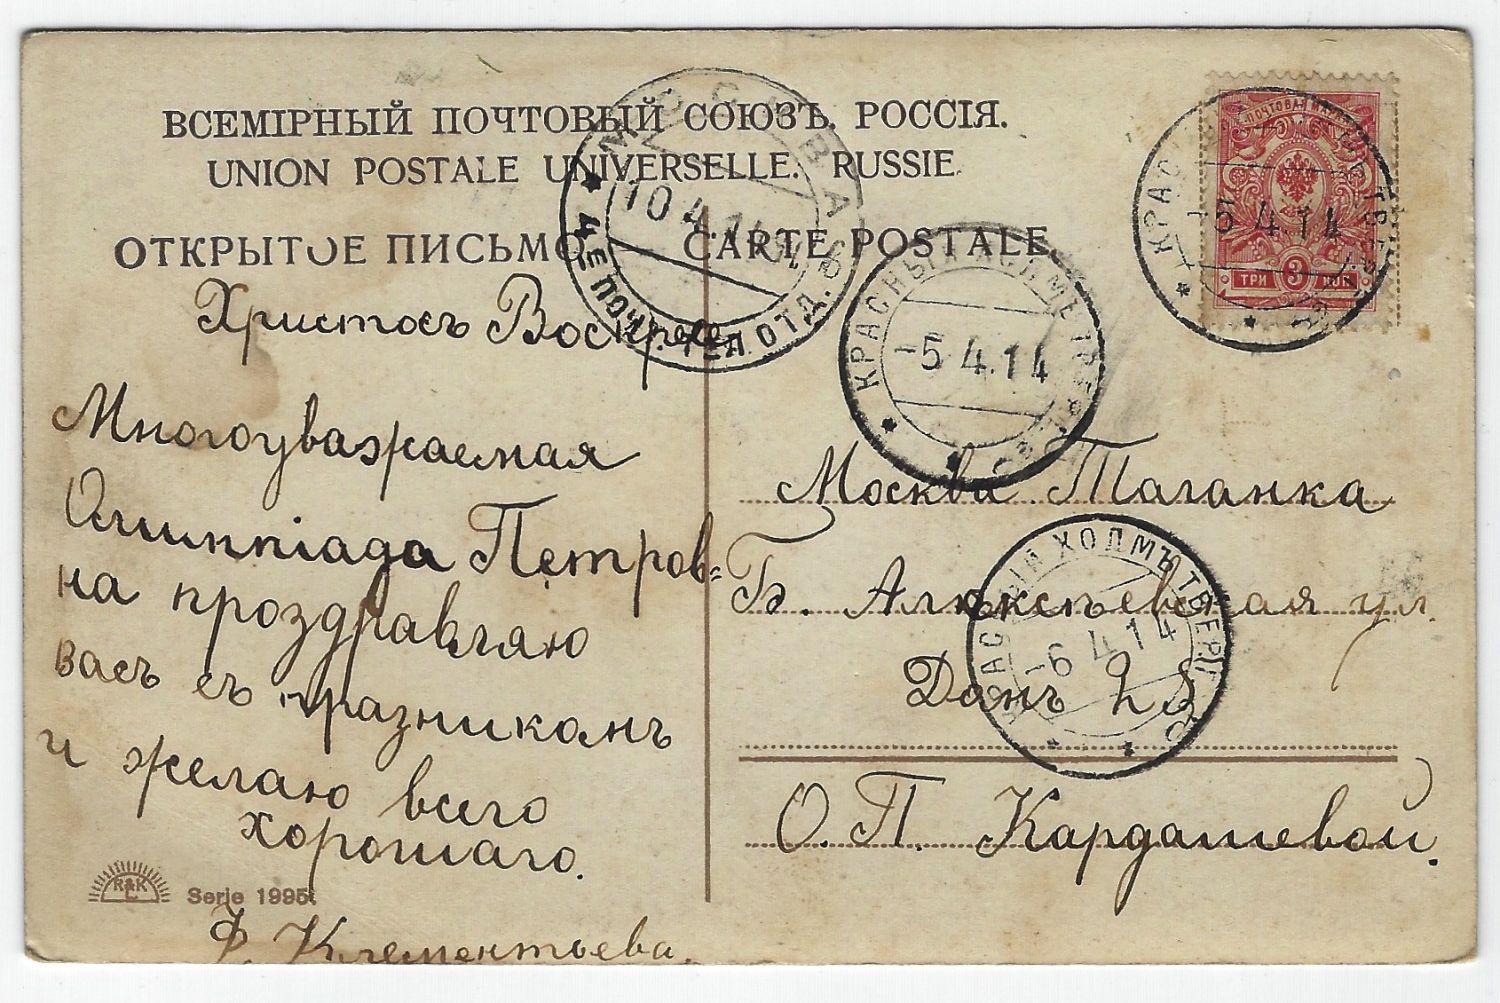 ВСЕМІРНЫЙ ПОЧТОВЫЙ СОЮЗЪ. РОССІЯ.
UNION POSTALE UNIVERSELLE. RUSSIE.
ОТКРЫТОЕ ПИСЬМО. CARTE POSTALE.
МОСКВА
10 4.14
ПОЧТ. ТЕЛ. ОТД.
КРАСНЫЙ ХОЛМЪ ТВЕРСК.
-5 4.14
ПОЧТОВАЯ МАРКА
ТРИ 3 КОП
КРАСНЫЙ ХОЛМЪ ТВЕР
-5 4.14
КРАСНЫЙ ХОЛМЪ ТВЕР
-6 4 14
Христосъ Воскресе
Многоуважаемая
Олимпіада Петров=
на проздравляю
васъ съ празникомъ
и желаю всего
хорошаго.
Ф. Клементьева.
Москва Таганка
Б. Алексѣевская ул.
Домъ 28
О. П. Кардашевой.
R&K
L
Serie 1995